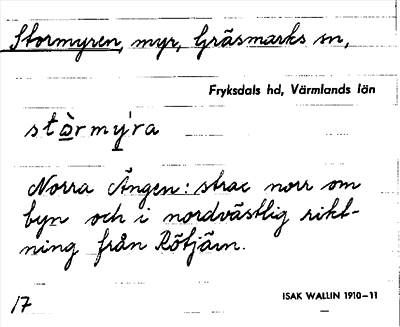 Stormyren, myr, Gräsmarks sn,
Fryksdals hd, Värmlands län
stòrmýra
Norra Ängen: strax norr om
byn och i nordvästlig rikt-
ning från Rötjärn.
17
ISAK WALLIN 1910–11